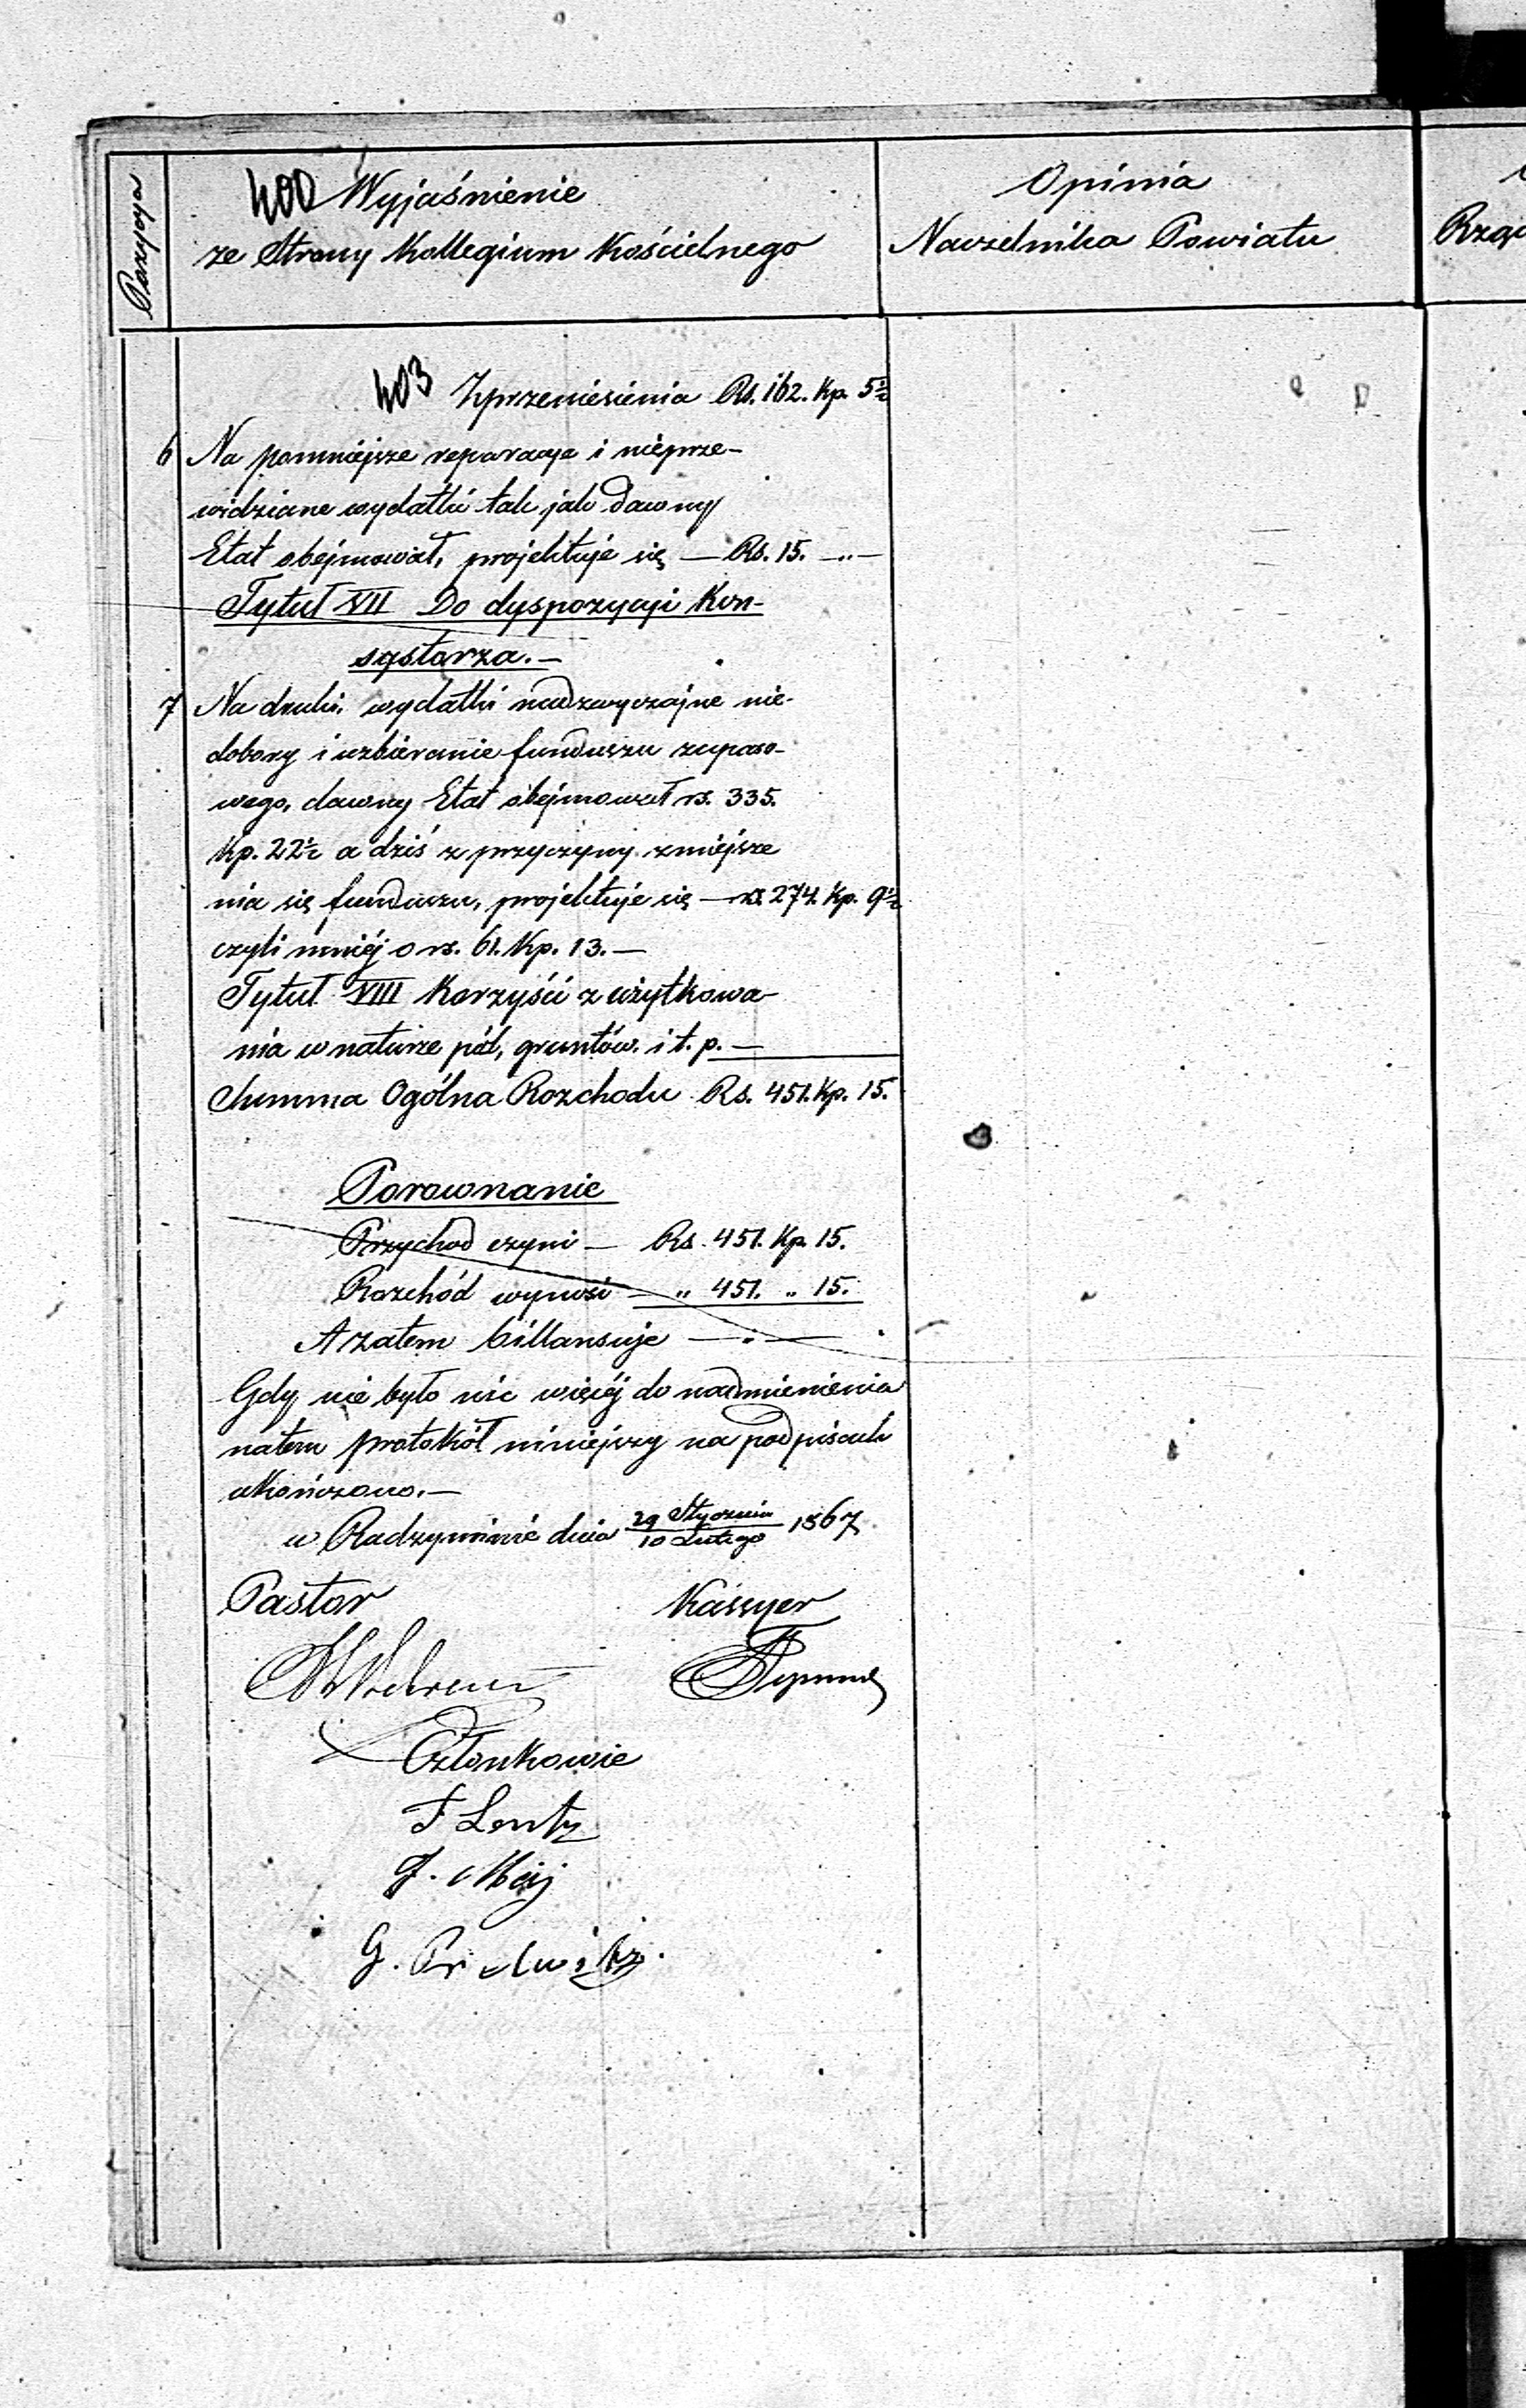 Pozycya
400 Wyjaśnienie
ze Strony Kollegium Kościelnego
Opinia
Naczelnika Powiatu
403 Zprzeniesienia Rs. 162. Kp. 5½
6 Na pomniejsze reparacye i nieprze-
widziane wydatki tak jak dawny
Etat obejmował, projektuje się — Rs. 15. —„—
Tytuł VII Do dyspozycyi Kon-
systorza.—
7 Na druki, wydatki nadzwyczajne nie-
dobory i uzbieranie funduszu zapaso-
wego, dawny Etat obejmował rs. 335.
Kp. 22½ a dziś z przyczyny zmiejsze
nia się funduszu, projektuje się — rs. 274. Kp. 9½
czyli mniéj o rs. 61. Kp. 13.—
Tytuł VIII Korzyści z użytkowa-
nia w naturze pól, gruntów. i t. p.—
Summa Ogólna Rozchodu Rs. 451. Kp. 15.
Porownanie
Przychod czyni — Rs. 451. Kp. 15.
Rozchód wynosi — „ 451. „ 15.
A zatem billansuje —.—
Gdy nie było nic więcéj do nadmienienia
natem protokół niniejszy na podpisach
ukończono.—
w Radzyminie dnia 29 Stycznia / 10 Lutego 1867
Pastor Kassyer
Członkowie
F Lentz
G.